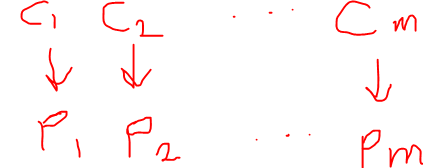 C₁ C₂ ... Cm
↓ ↓ ↓
P₁ P₂ ... Pm